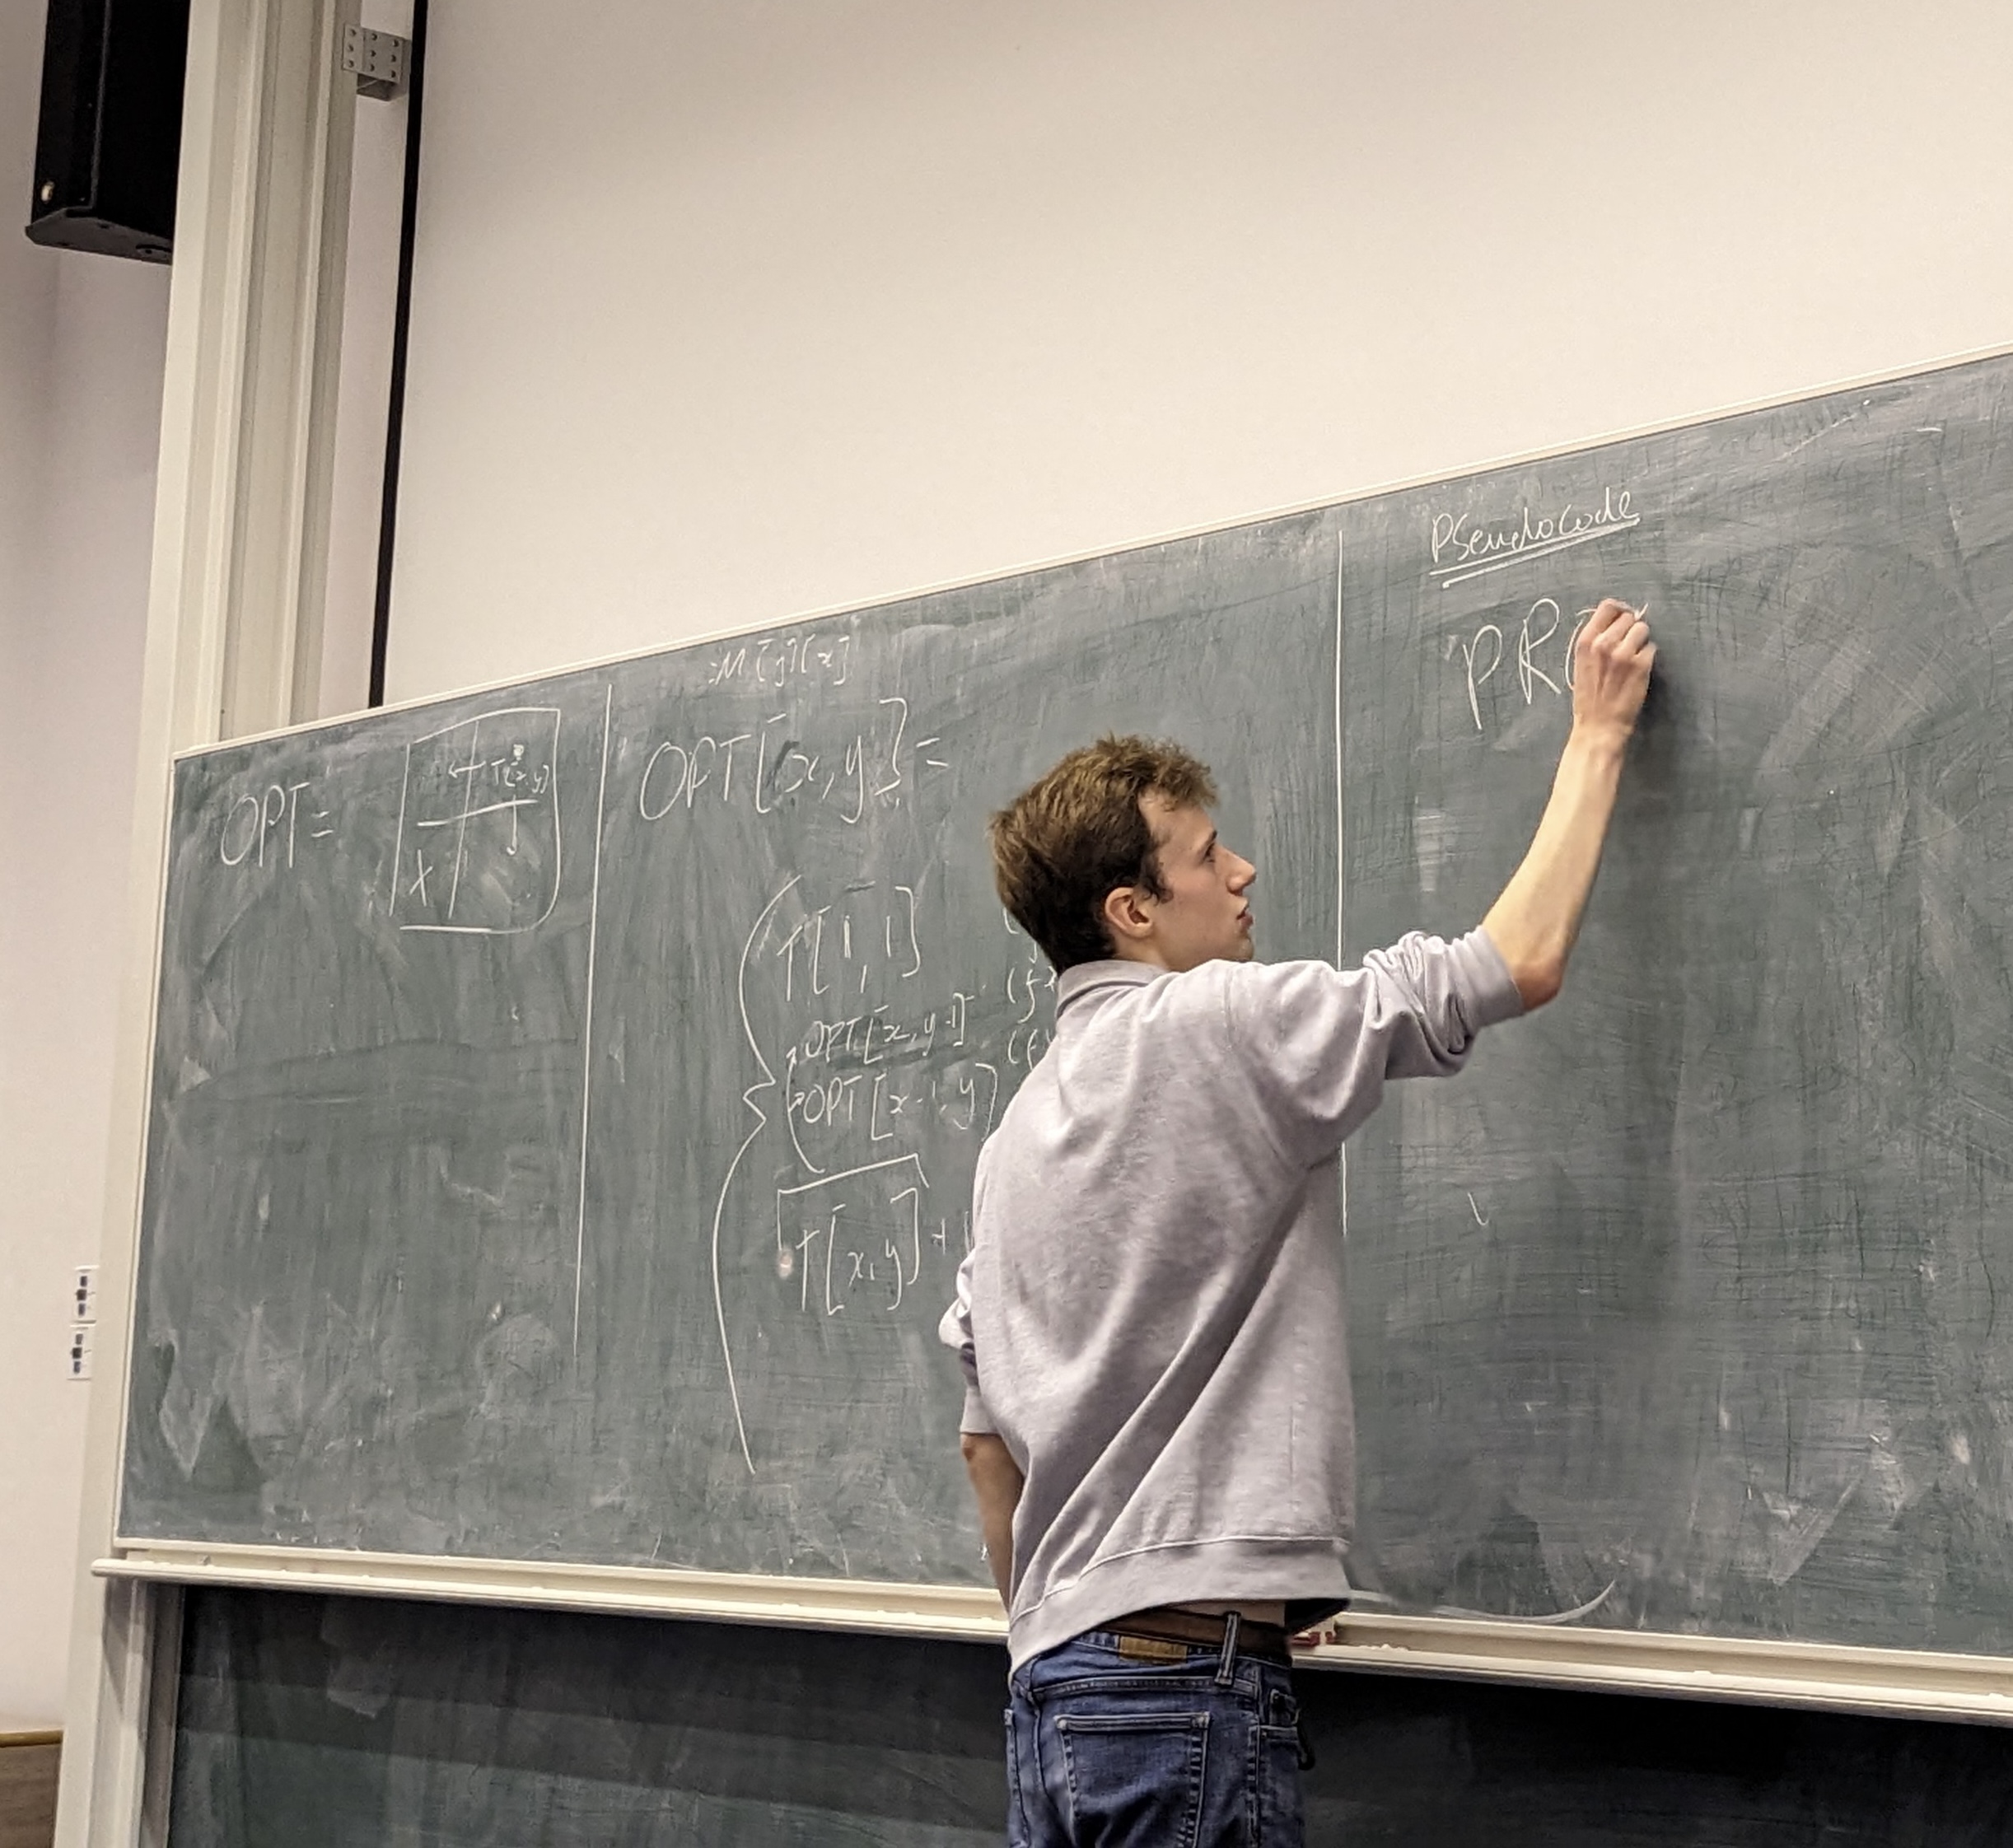 OPT =
T[x,y]
X
:M[y][x]
OPT[x,y] =
T[1,1]
OPT[x,y-1]
OPT[x-1,y]
T[x,y] +
Pseudocode
PRO